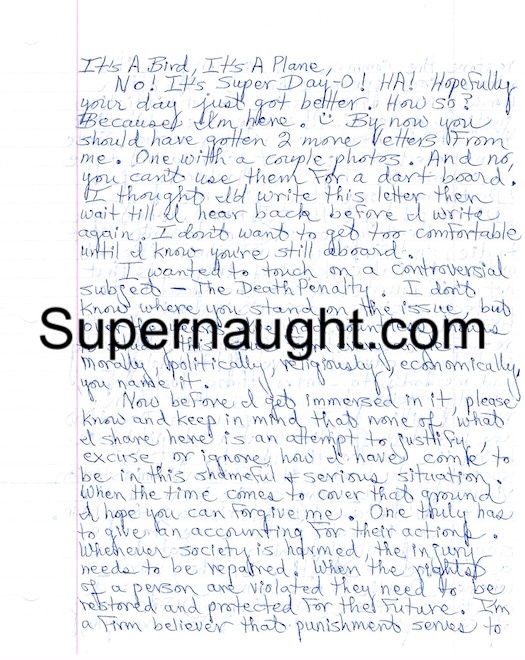 It's A Bird, It's A Plane,
No! It's Super Day-O! HA! Hopefully
your day just got better. How so?
Because I'm here. By now you
should have gotten 2 more letters from
me. One with a couple photos. And no,
you can't use them for a dart board.
I thought I'd write this letter then
wait till I hear back before I write
again. I don't want to get too comfortable
until I know you're still aboard.
I wanted to touch on a controversial
subject – The Death Penalty. I don't
know where you stand on the issue, but
Supernaught.com
morally, politically, religiously, economically,
you name it.
Now before I get immersed in it, please
know and keep in mind that none of what
I share here is an attempt to justify,
excuse or ignore how I have come to
be in this shameful & serious situation.
When the time comes to cover that ground
I hope you can forgive me. One truly has
to give an accounting for their actions.
Whenever society is harmed, the injury
needs to be repaired. When the rights
of a person are violated they need to be
restored and protected for the future. I'm
a firm believer that punishment serves to